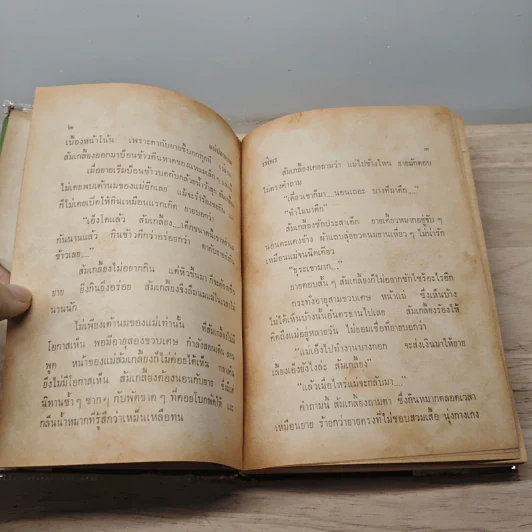 ๒
เบื้องหน้าโน้น เพราะตากับยายขี้บอกทุกที
ส้มเกลี้ยงออกมาป้อนข้าวต้นหาดของแหม่ม
เมื่อยายเริ่มป้อนข้าวบดกับกล้วยน้ำ
ไม่เคยพบเต้านมของแม่อีกเลย
ก็ไม่เคยเปิดให้กินเหมือนแรกเกิด ยายบอกว่า
"เอ็งโตแล้ว ส้มเกลี้ยง...เด็ก
กันนานแล้ว กินข้าวดีกว่าอร่อยกว่า
ข้าวเลย..."
ส้มเกลี้ยงไม่อยากกิน แต่หิวขึ้นมา
ยาย ยิ่งกินยิ่งอร่อย ส้มเกลี้ยงจึงลืมนมแม่
นานนัก
ไม่เพียงเต้านมของแม่เท่านั้น ที่ส้มเกลี้ยงไม่มี
โอกาสเห็น พอมีอายุสองขวบเศษ กำลังสอนเดิน สอน
พูด หน้าของแม่ส้มเกลี้ยงก็ไม่ค่อยได้เห็น
ยิ่งไม่มีโอกาสเห็น ส้มเกลี้ยงต้องนอนกับยาย
นิทานซ้ำๆ ซากๆ กับพัดขาดๆ ที่คอยโบกพัดให้ และ
กลิ่นน้ำหมากที่รู้สึกว่าเหม็นเหลือทน
รพีพร
๓
ส้มเกลี้ยงเคยถามว่า แม่ไปข้างไหน ยายมักตอบ
ไม่ตรงคำถาม
"เดี๋ยวเขาก็มา...นอนเถอะ บางทีมาดึก..."
"ทำไมมาดึก"
ส้มเกลี้ยงซักประสาเด็ก ยายเคี้ยวหมากอยู่ยับๆ
นอนตะแคงข้าง ผ้าแถบลุ่ย นมยายเหี่ยวๆ ไม่น่ารัก
เหมือนแม่ชนนิดเดียว
"ธุระเขามาก..."
ยายตอบสั้นๆ ส้มเกลี้ยงก็ไม่อยากซักไซ้ร้อะไรอีก
กระทั่งอายุสามขวบเศษ หน้าแม่ ซึ่งเห็นบ้าง
ไม่ได้เห็นบ้างนั้นอันตรธานไปเลย ส้มเกลี้ยงร้องไห้
คิดถึงแม่อยู่หลายวัน ไม่ยอมเชื่อที่ยายบอกว่า
"แม่เอ็งไปทำงานบางกอก จะส่งเงินมาให้ยาย
เลี้ยงเอ็งยังไงล่ะ ส้มเกลี้ยง"
"แล้วเมื่อไหร่แม่จะกลับมา..."
คำถามนี้ ส้มเกลี้ยงถามตา ซึ่งกินหมากตลอดเวลา
เหมือนยาย ร้ายกว่ายายตรงที่ไม่ชอบสวมเสื้อ นุ่งกางเกง